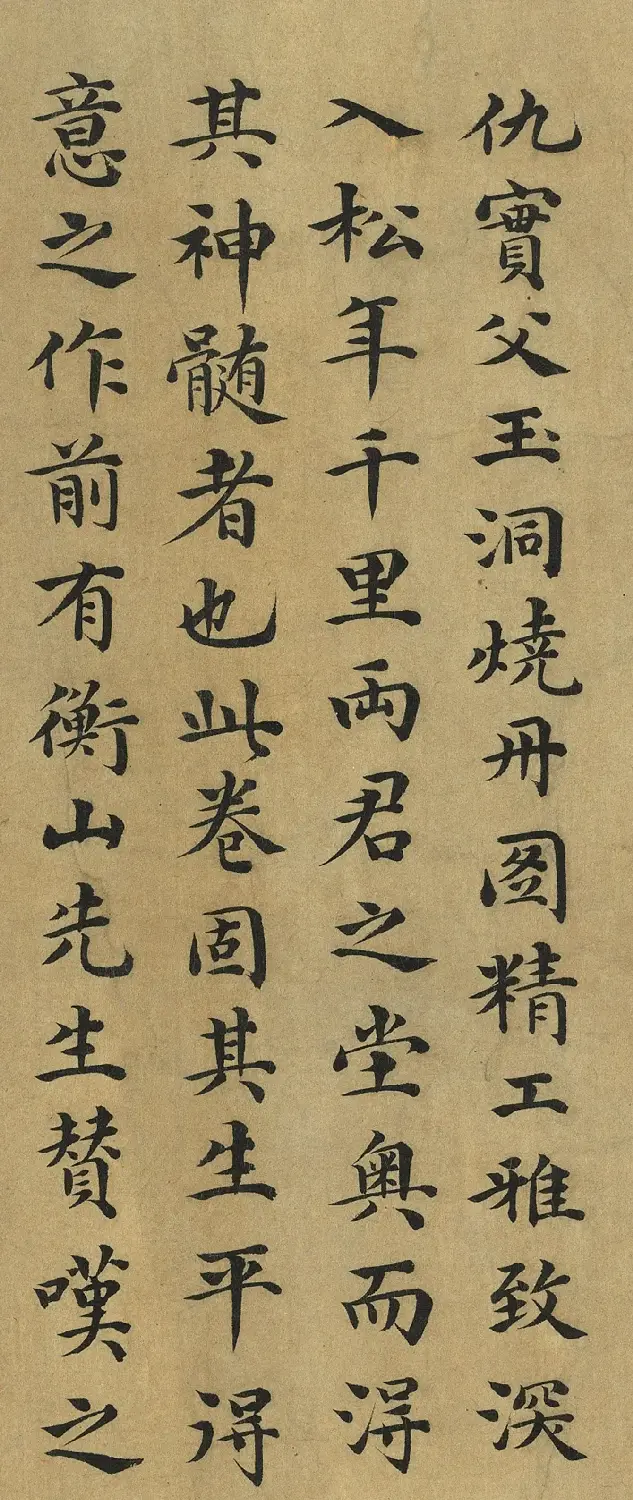 仇實父玉洞燒丹圖精工雅致深
入松年千里両君之堂奧而得
其神髓者也此卷固其生平得
意之作前有衡山先生賛嘆之